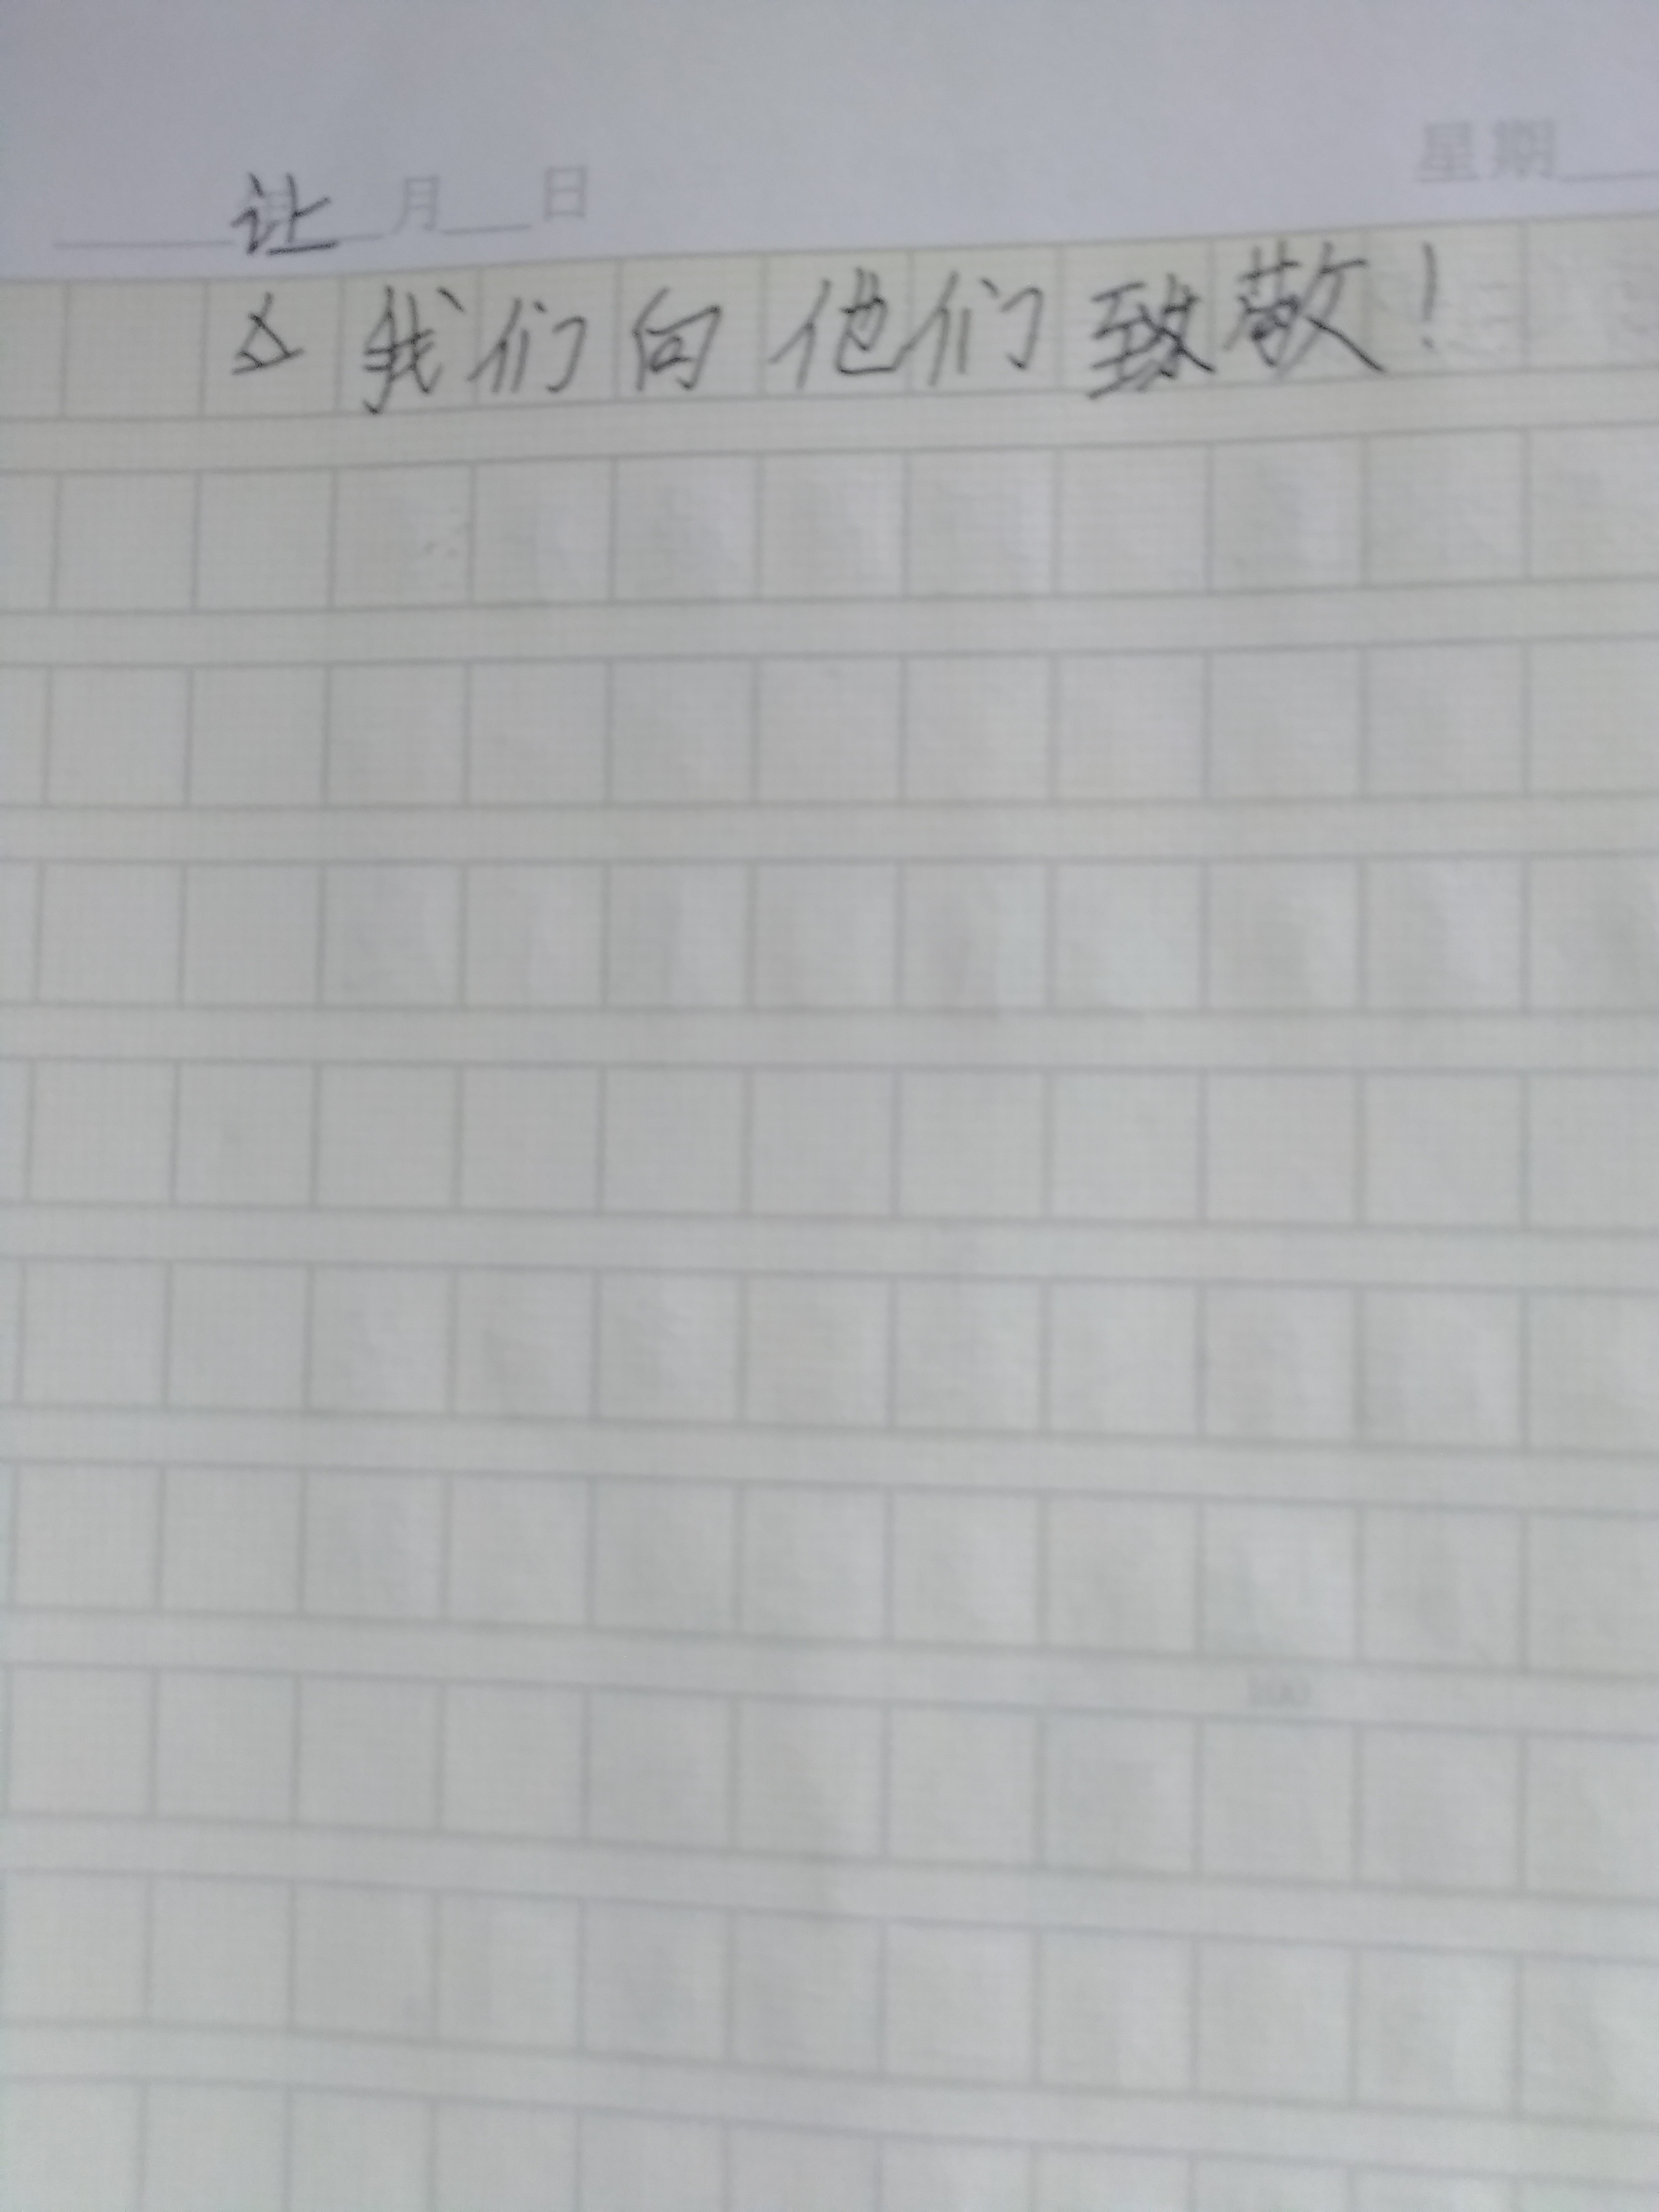 让
月 日 星期
我们向他们致敬!
100